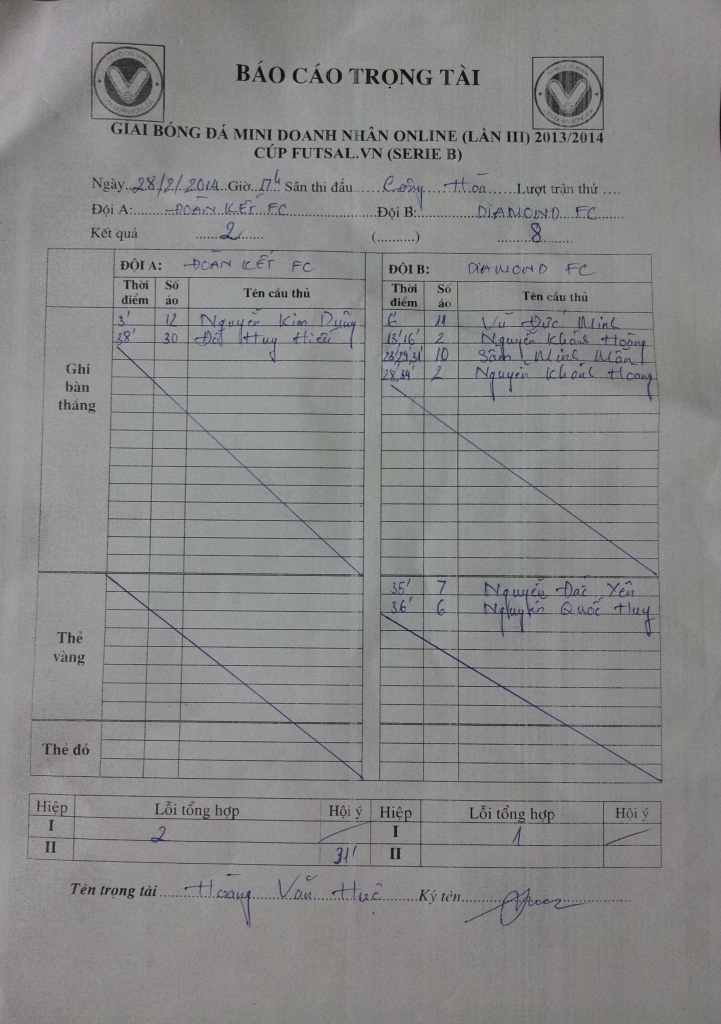 BÁO CÁO TRỌNG TÀI
GIẢI BÓNG ĐÁ MINI DOANH NHÂN ONLINE (LẦN III) 2013/2014
CÚP FUTSAL.VN (SERIE B)
Ngày 28/2/2014 Giờ 17h Sân thi đấu Cộng Hòa Lượt trận thứ ....
Đội A: ĐOÀN KẾT FC Đội B: DIAMOND FC
Kết quả 2 (..........) 8
ĐỘI A: ĐOÀN KẾT FC ĐỘI B: DIAMOND FC
Thời điểm Số áo Tên cầu thủ Thời điểm Số áo Tên cầu thủ
Ghi bàn thắng
3' 12 Nguyễn Kim Dũng 6' 11 Vũ Đức Minh
38' 30 Đỗ Huy Hiếu 13/16' 2 Nguyễn Khánh Hoàng
23/29,31' 10 Sầm Minh Mẫn
28,34' 2 Nguyễn Khánh Hoàng
Thẻ vàng
35' 7 Nguyễn Đắc Yên
36' 6 Nguyễn Quốc Huy
Thẻ đỏ
Hiệp Lỗi tổng hợp Hội ý Hiệp Lỗi tổng hợp Hội ý
I 2 I 1
II 31' II
Tên trọng tài Hoàng Văn Huê Ký tên